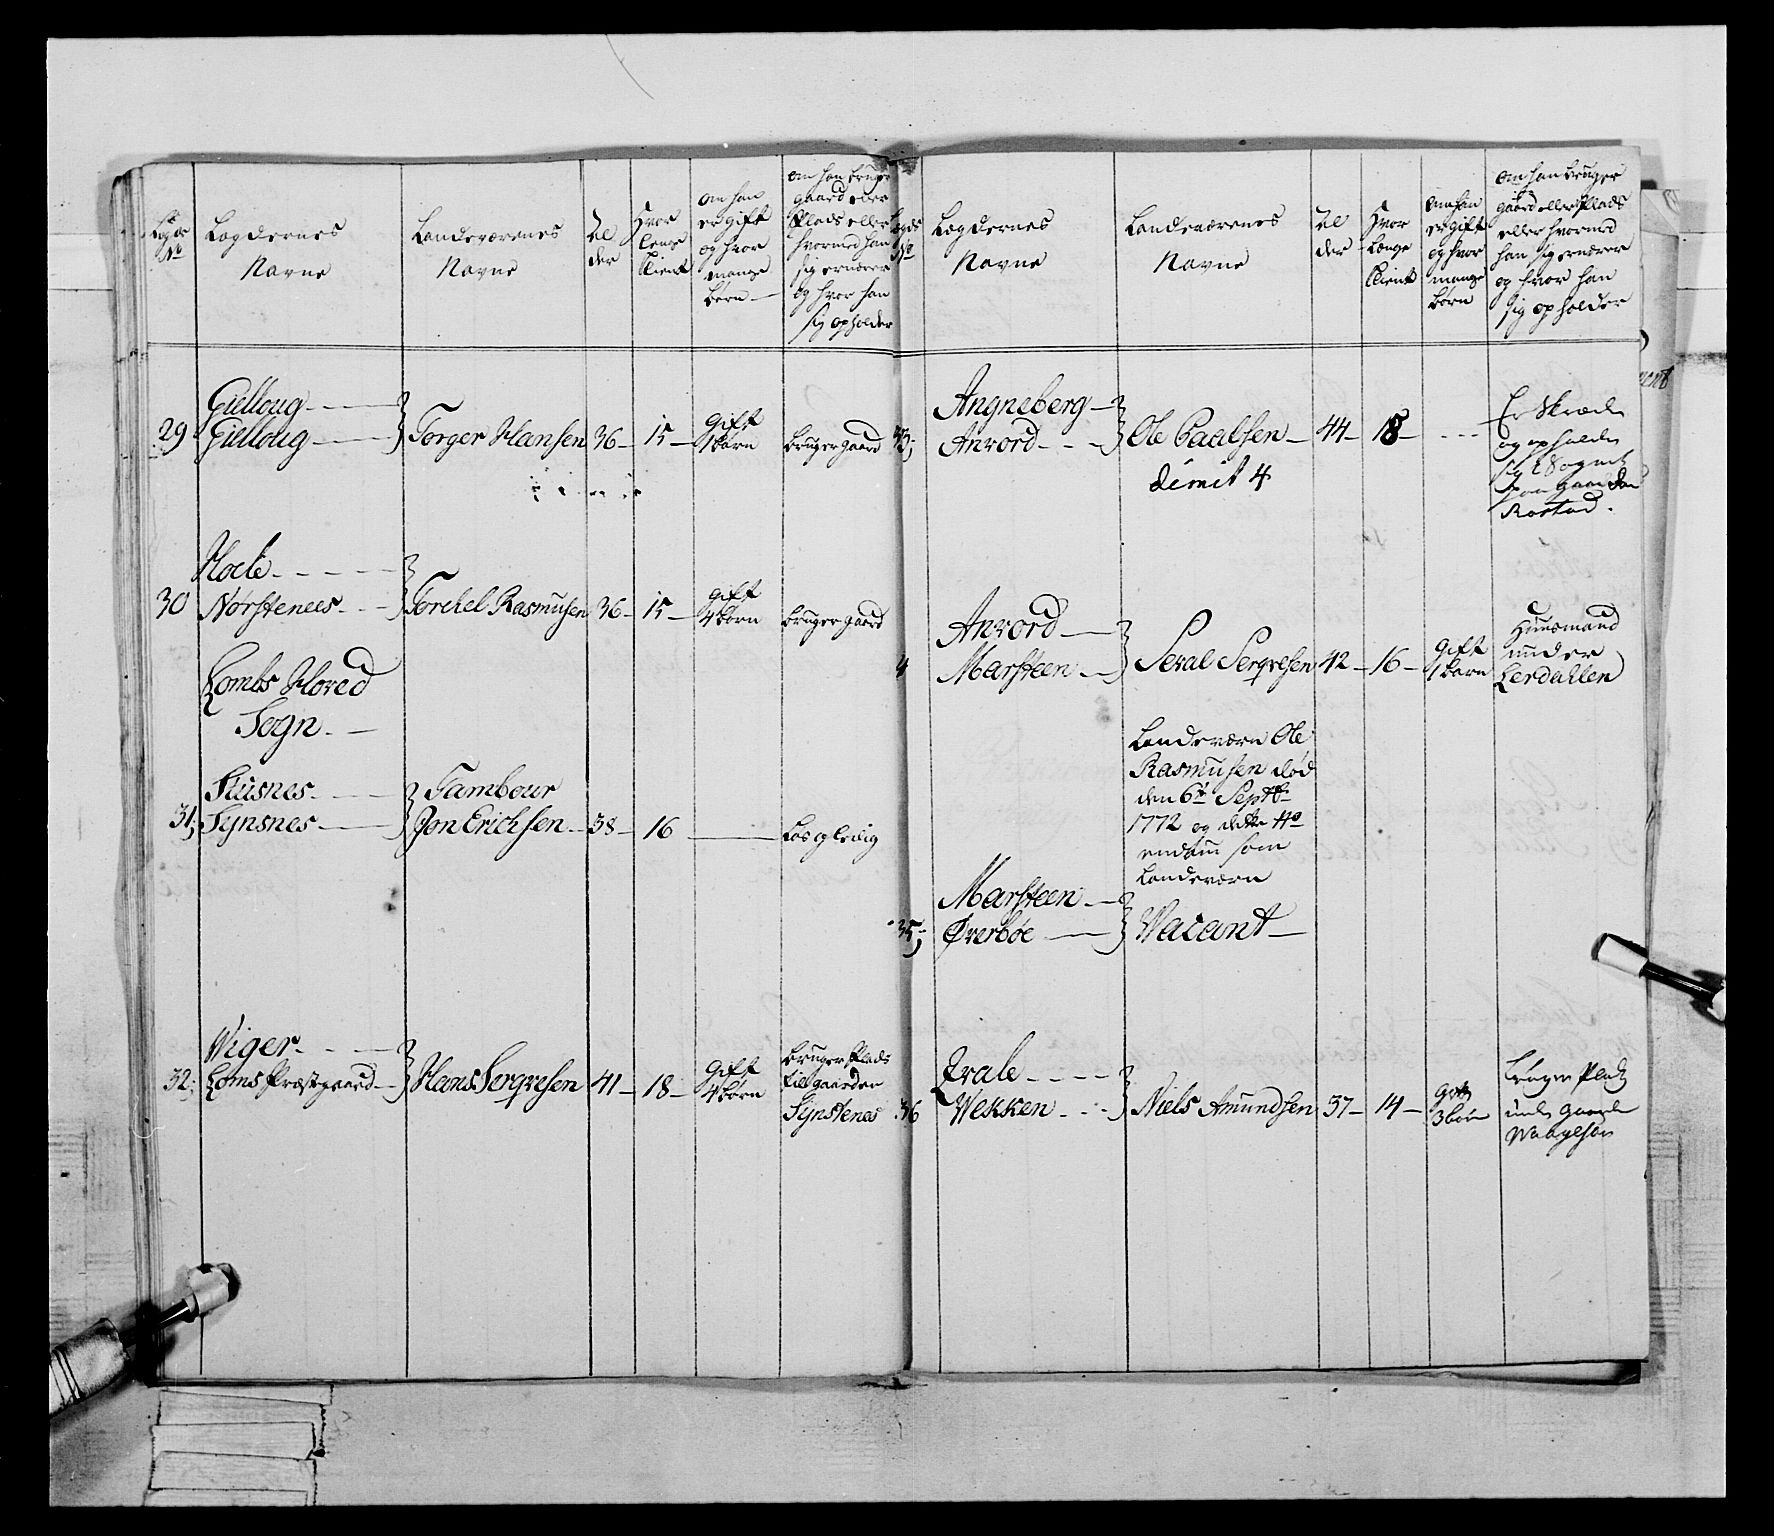 Lægdernes
Navne
Landeværenes
Navne
Al
der
Hvor
lenge
tient
om han
er gift
og hvor
mange
børn
om han bruger
gaard eller
Plads eller
hvormed han
sig ernærer
og hvor han
sig opholder
Gielloug
29 Gielloug Torger Hansen 36 15 Gift
1 barn bruger gaard
Hoele
30 Norstenees Torchel Rasmusen 36 15 gift
4 børn bruger gaard
Lombs Hoved
Sogn
Skusnes Tambour
31 Synsnes Jon Erichsen 38 16 Løs og ledig
Wiger
32 Loms Præstgaard Hans Serqvesen 41 18 Gift
4 børn
bruger Plads
till gaarden
Synstenes
Lægds
No
Lægdernes
Navne
Landeværenes
Navne
Al
der
Hvor
længe
tient
om han
er gift
og hvor
mange
børn
om han bruger
gaard eller Plads
eller hvormed
han sig ernærer
og hvor han
sig opholder
Angneberg
33 Anvord Ole Paalsen 44 18
dimit 4
Er Skræder
og opholder
sig i Sognet
paa gaarden
Anvord
4 Marsteen Seval Serqvesen 42 16 Gift
1 barn
Huusmand
under
Lerdahlen
Landeværn Ole
Rasmusen død
den 6te Septbr
1772 og dette No
endnu som
Landeværn
Marsteen
35 Øverbøe Vacant
36 Wekken Niels Amundsen 37 14 gift
3 børn
bruger Plads
under gaarden